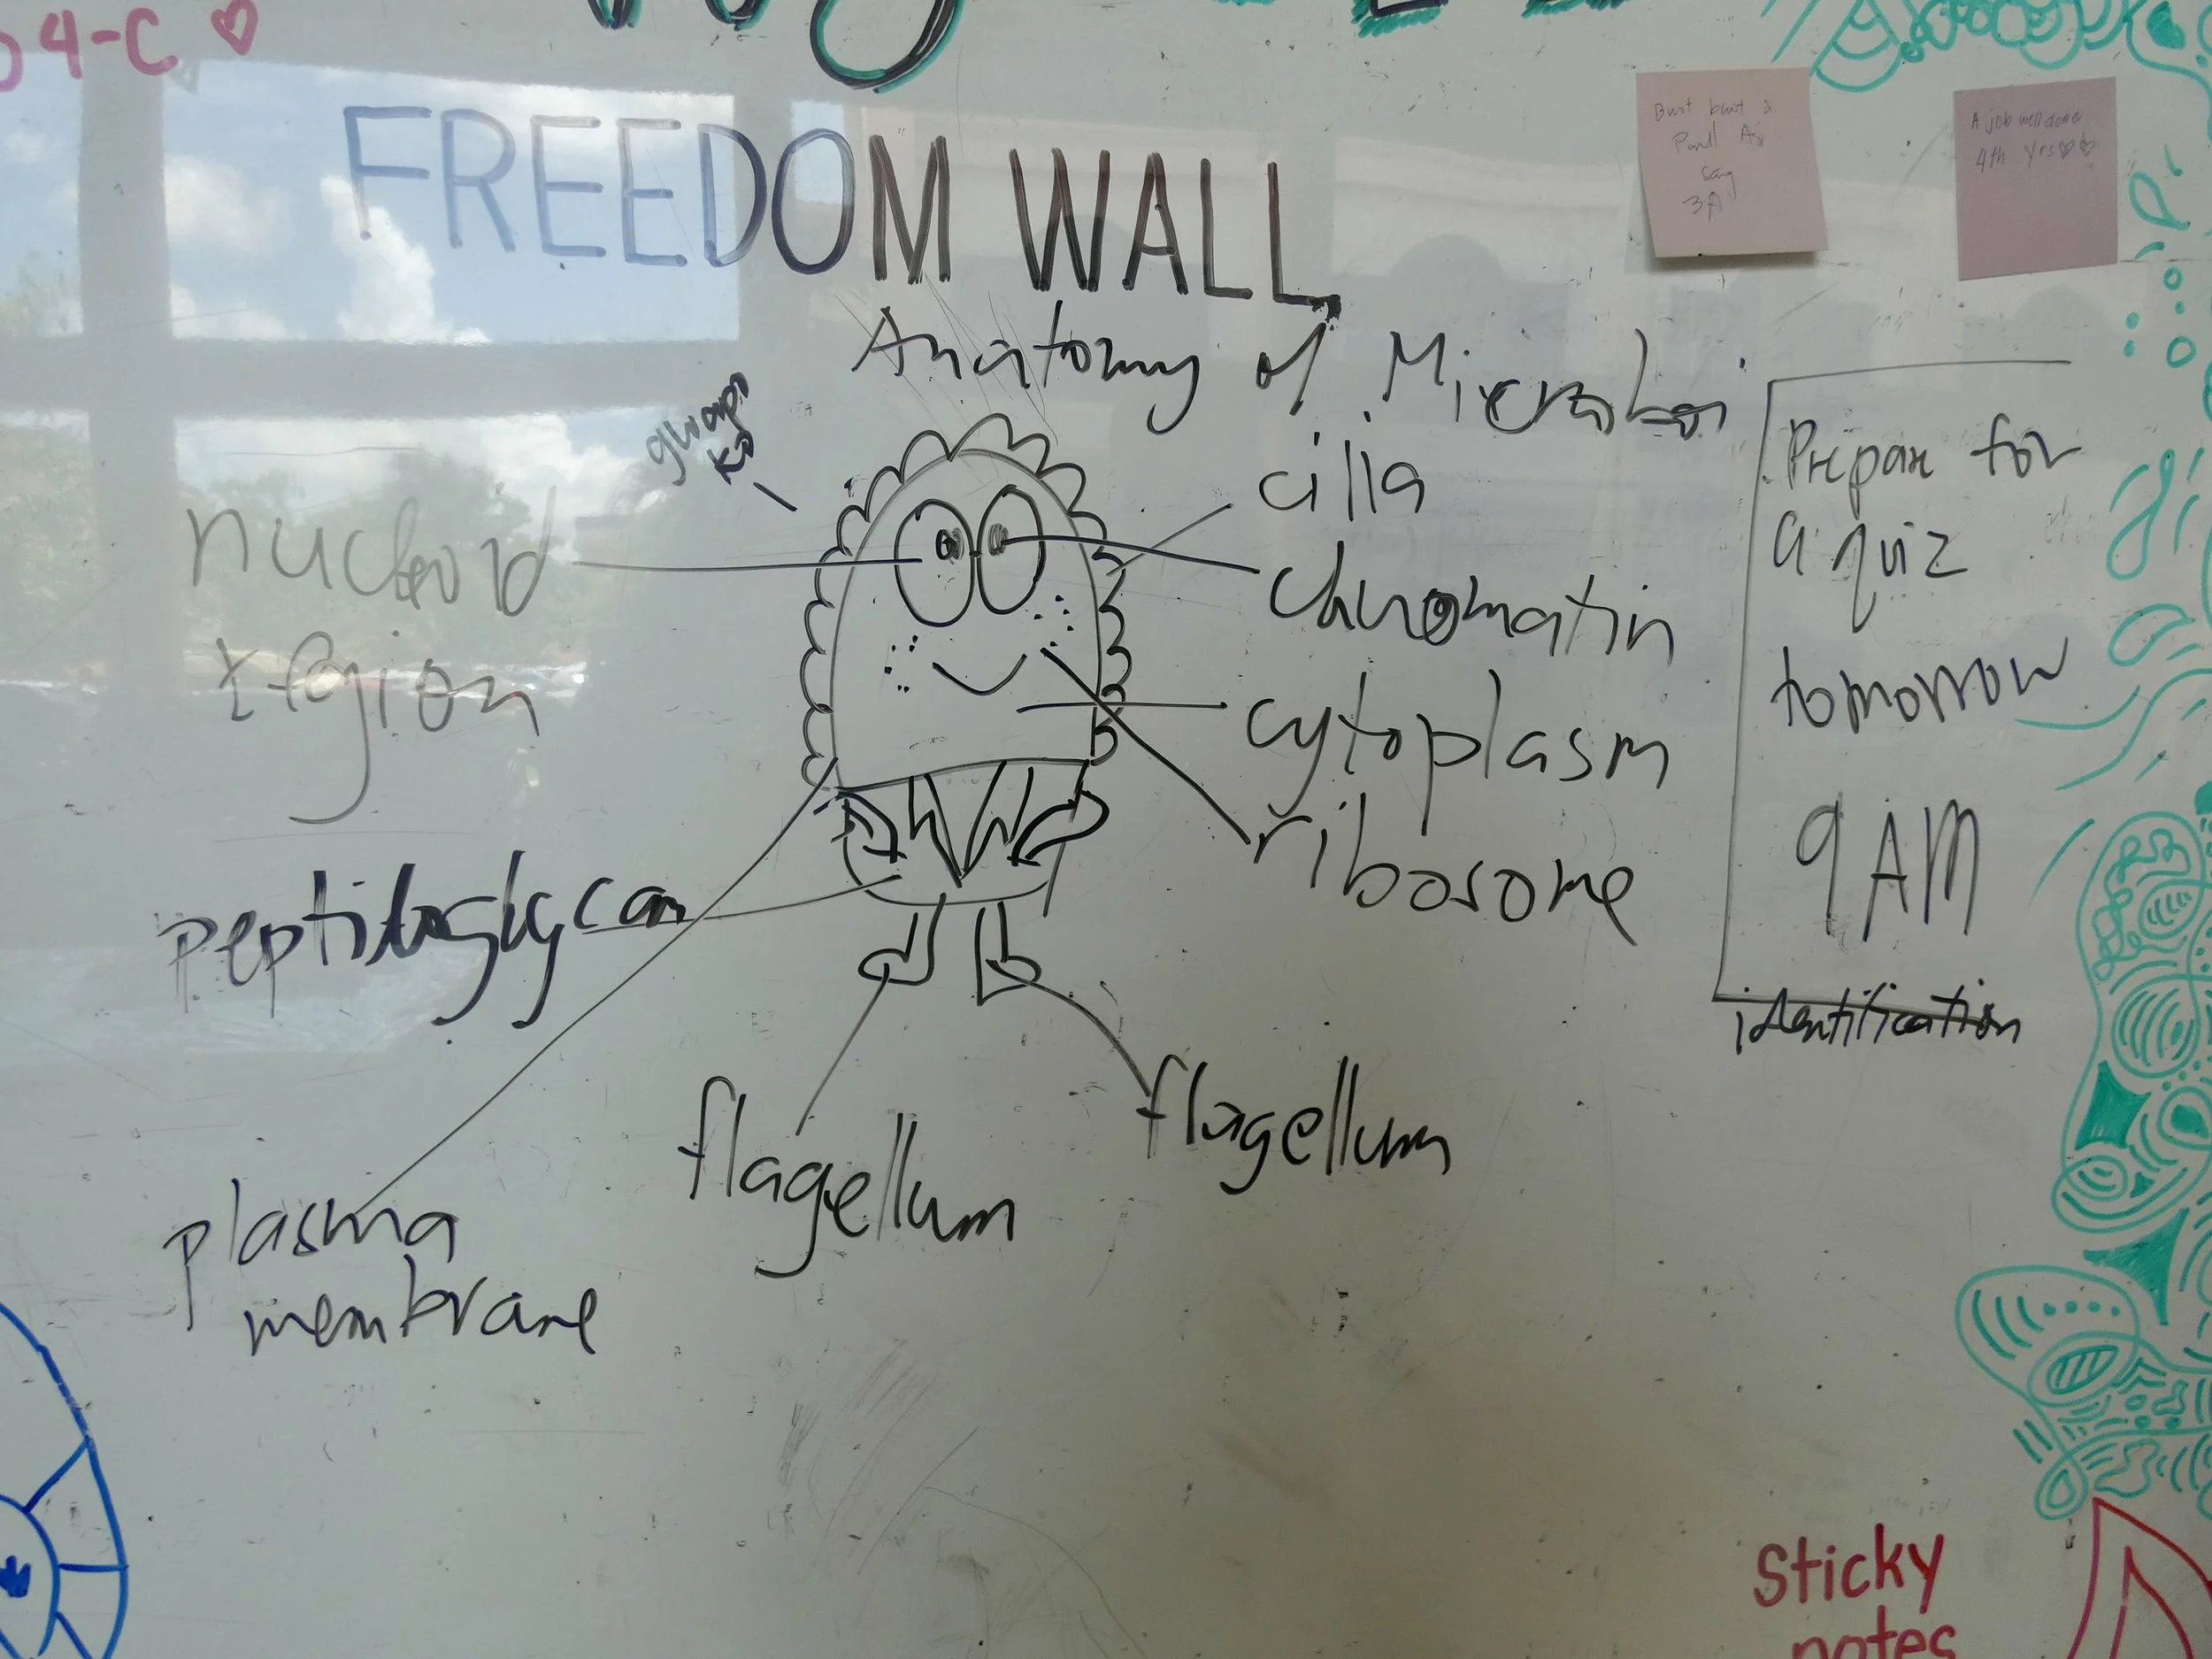 4-C
FREEDOM WALL
A job well done
4th yrs
Anatomy of Microboi
gwapo
ko
cilia
nucleoid
region
chromatin
cytoplasm
ribosome
peptidoglycan
plasma
membrane
flagellum
flagellum
Prepare for
a quiz
tomorrow
9 AM
identification
Sticky
notes